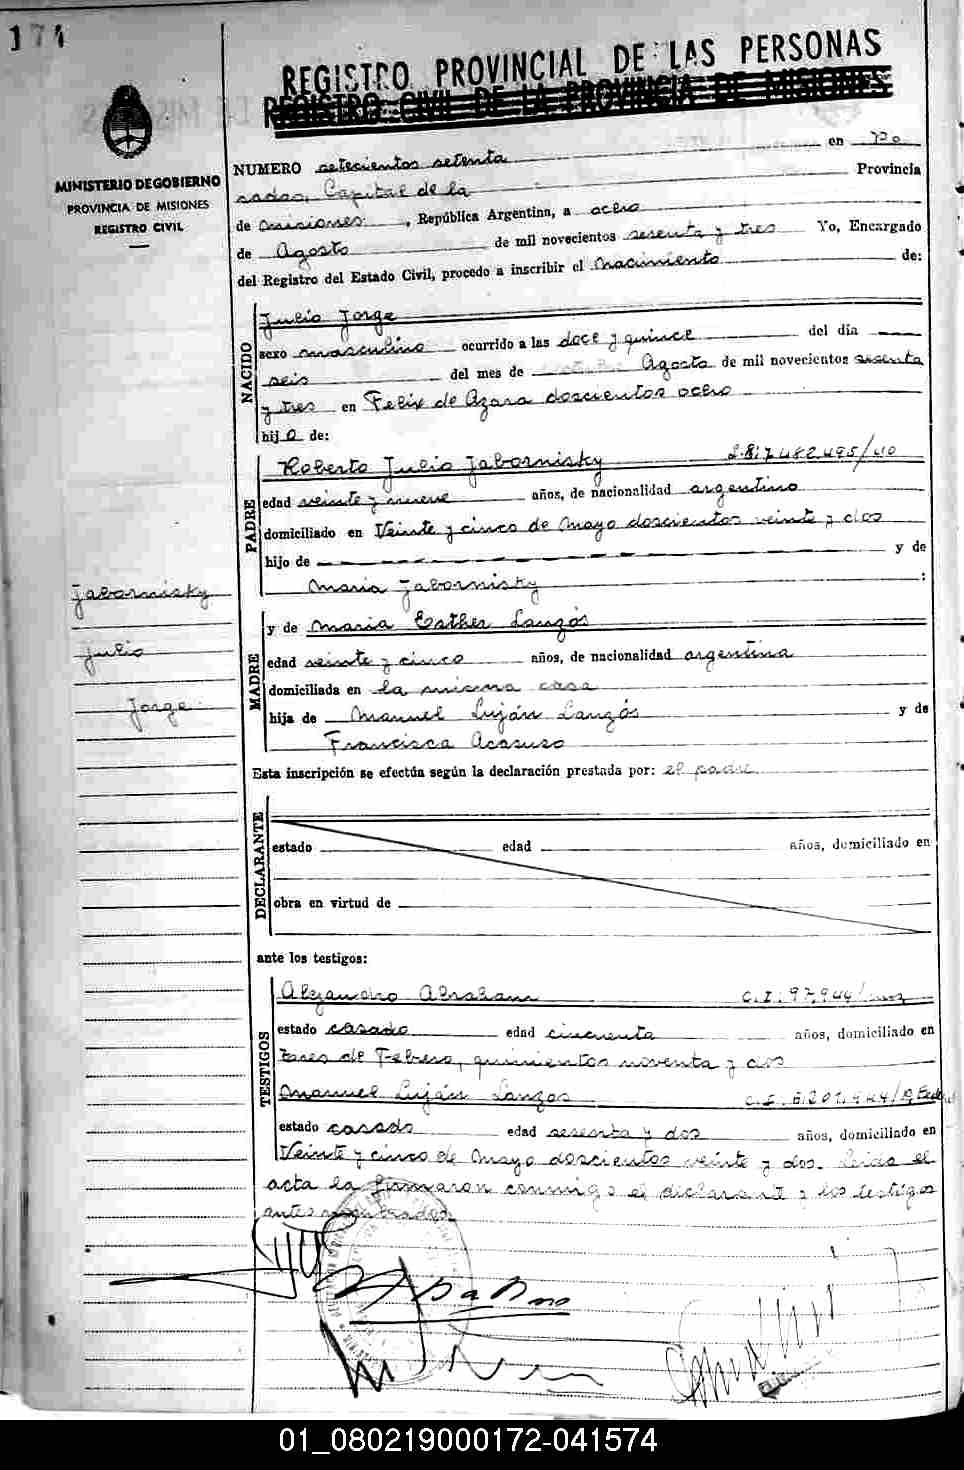 174
REGISTRO PROVINCIAL DE LAS PERSONAS
REGISTRO CIVIL DE LA PROVINCIA DE MISIONES
MINISTERIO DE GOBIERNO
PROVINCIA DE MISIONES
REGISTRO CIVIL
NUMERO setecientos setenta en Po
sadas, Capital de la Provincia
de Misiones, República Argentina, a ocho
de Agosto de mil novecientos sesenta y tres Yo, Encargado
del Registro del Estado Civil, procedo a inscribir el Nacimiento de:
NACIDO
Julio Jorge
sexo masculino ocurrido a las doce y quince del día
seis del mes de Agosto de mil novecientos sesenta
y tres en Felix de Azara doscientos ocho
hijo de:
PADRE
Roberto Julio Jabornisky 7.482.495/40
edad veinte y nueve años, de nacionalidad argentino
domiciliado en Veinte y cinco de Mayo doscientos veinte y dos
hijo de - - - - - - - - y de
Maria Jabornisky :
Jabornisky
Julio
Jorge
MADRE
y de Maria Esther Lanzós
edad veinte y cinco años, de nacionalidad argentina
domiciliada en la misma casa
hija de Manuel Luján Lanzós y de
Francisca Acasuso
Esta inscripción se efectúa según la declaración prestada por: el padre
DECLARANTE
estado edad años, domiciliado en
obra en virtud de
ante los testigos:
TESTIGOS
Alejandro Abraham C.I. 97.944/
estado casado edad cincuenta años, domiciliado en
Tres de Febrero, quinientos noventa y dos
Manuel Luján Lanzos C.I. 6.207.944/P. Federal
estado casado edad sesenta y dos años, domiciliado en
Veinte y cinco de Mayo doscientos veinte y dos. Leida el
acta la firmaron conmigo el declarante y los testigos
antes nombrados.
01_080219000172-041574